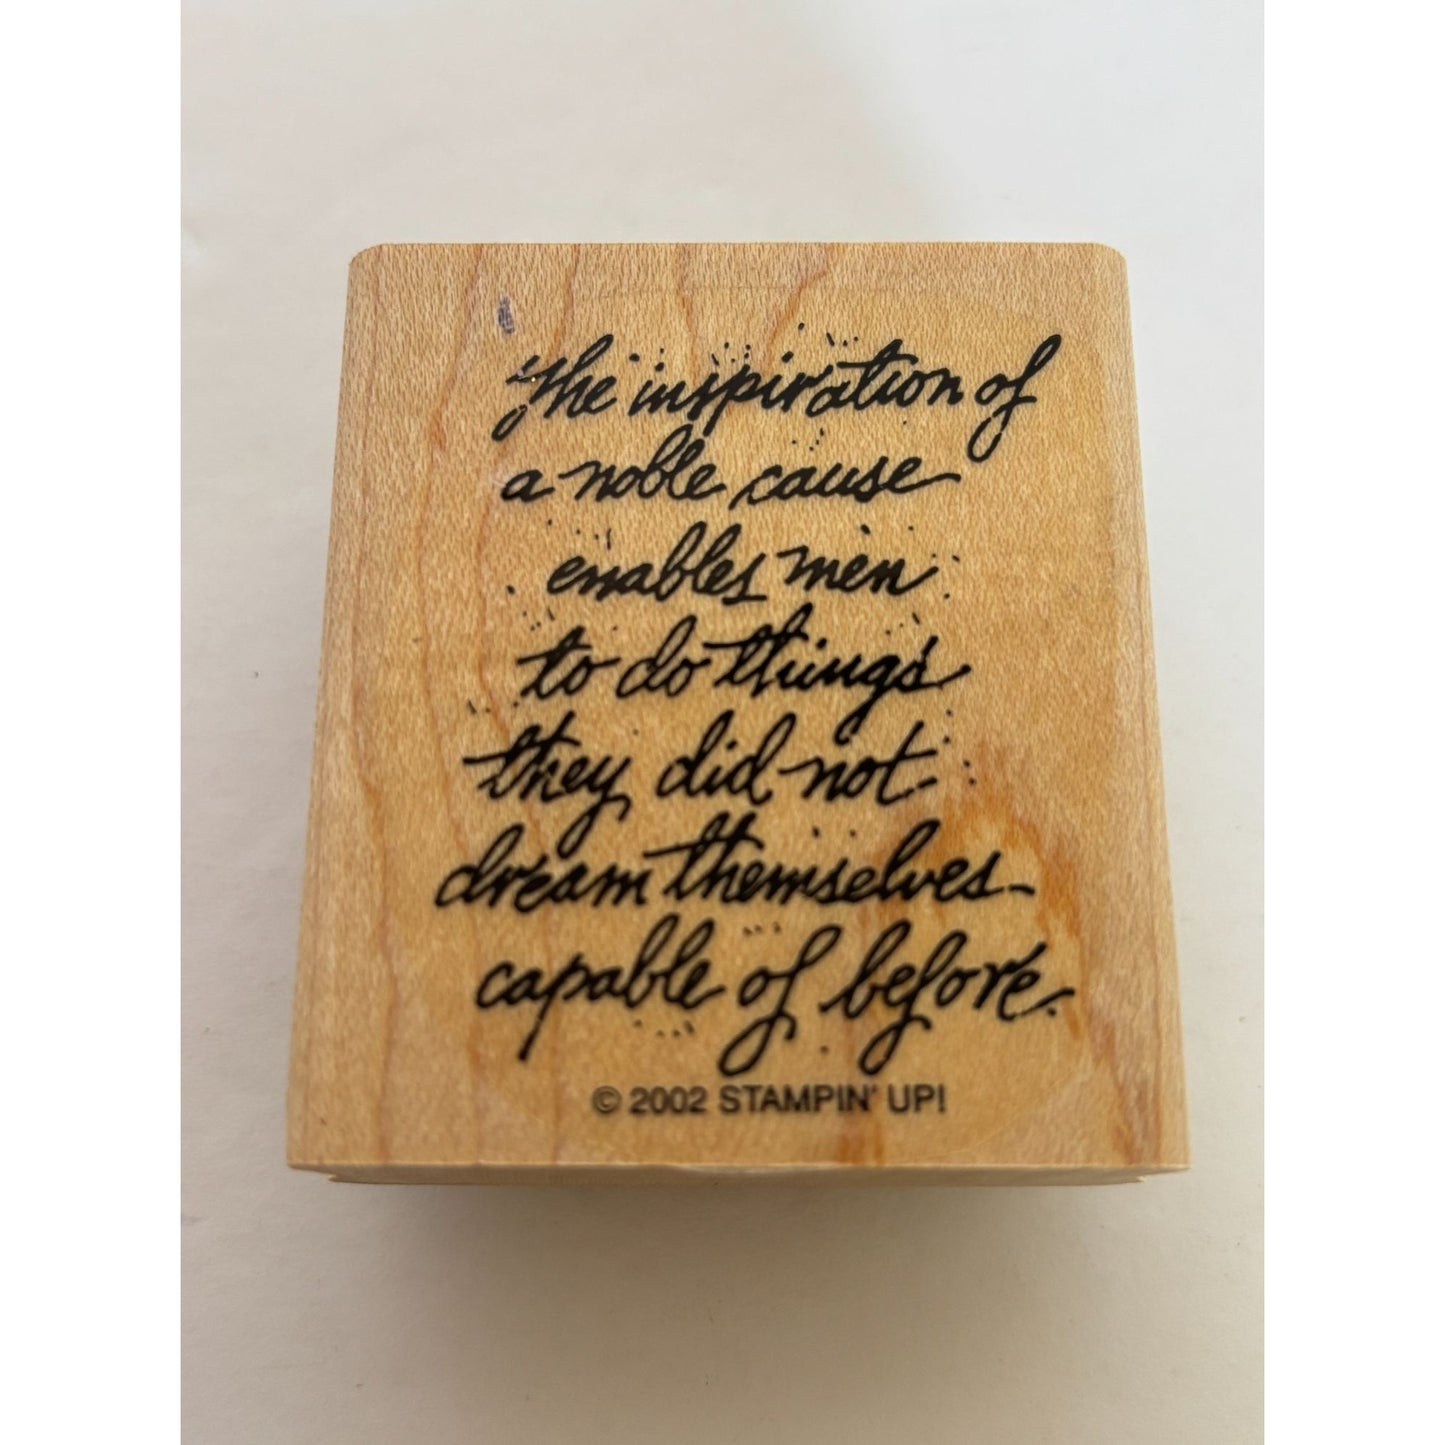 The inspiration of
a noble cause
enables men
to do things
they did not
dream themselves
capable of before.
© 2002 STAMPIN' UP!